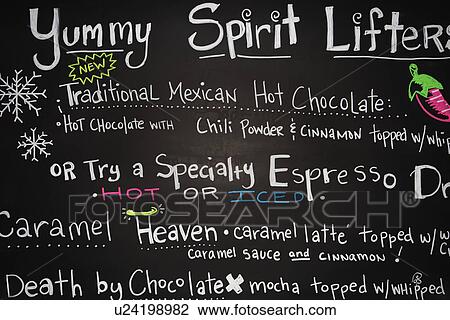 Yummy Spirit Lifters
NEW
Traditional Mexican Hot Chocolate
• HOT CHOCOLATE WITH CHILI POWDER & CINNAMON topped w/whip
OR Try a Specialty Espresso Dr
• HOT OR ICED •
FOTOSEARCH
Caramel Heaven • caramel latte topped w/w
CARAMEL SAUCE and CINNAMON!
Death by Chocolate x mocha topped w/whipped
u24198982 www.fotosearch.com